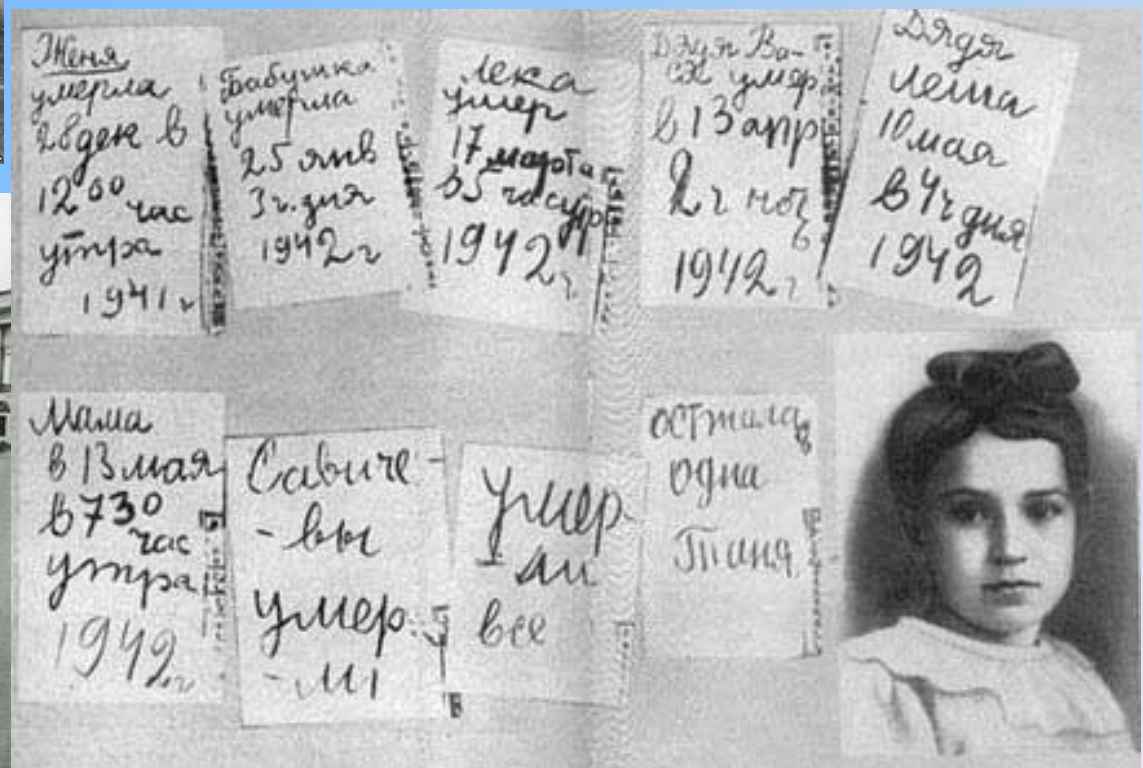 Женя
умерла
28 дек в
12 00 час
утра
1941 г
Бабушка
умерла
25 янв
3 ч. дня
1942 г
Лека
умер
17 марта
в 5 час утр
1942 г
Дядя Ва-
ся умер
в 13 апр
2 ч ночь
1942 г
Дядя
Леша
10 мая
в 4 ч дня
1942
Мама
в 13 мая
в 7 30
час
утра
1942 г
Савиче-
-вы
умер
-ли
Умер-
ли
все
Осталась
одна
Таня